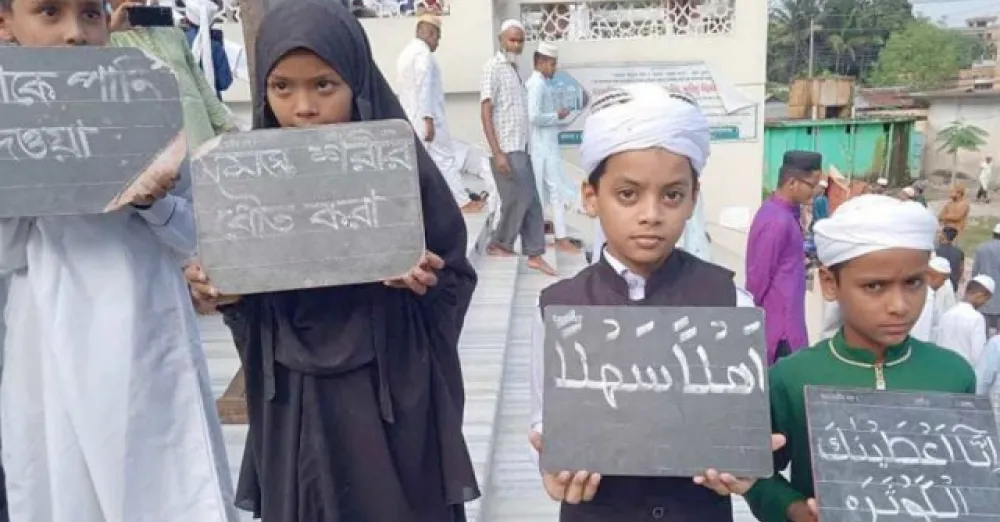 াকে পানি
দেওয়া
সমস্ত শরীর
ধৌত করা
اَهْلًا سَهْلًا
اِنَّآ اَعْطَيْنٰكَ
الْكَوْثَرَه